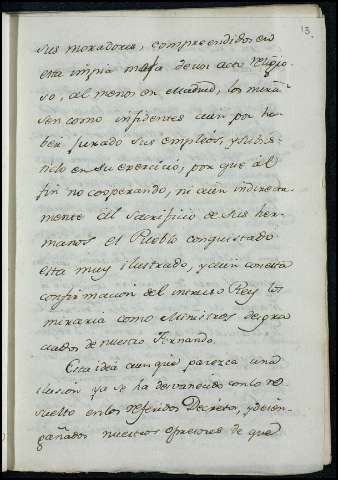 13.
sus moradores, comprendidos en
esta impia mofa de un acto religio-
so, al menos en Madrid, los mira-
sen como infidentes aun por ha-
ber jurado sus empleos, y subsis-
tido en su exercicio, por que al
fin no cooperando, ni aun indirecta-
mente al sacrificio de sus her-
manos el Pueblo conquistado
esta muy ilustrado, y aun con esta
confirmacion del intruso Rey los
miraria como Ministros desgra-
ciados de nuestro Fernando.
Esta idea aunque parezca una
ilusion ya se ha desvanecido con lo re-
suelto en los referidos Decretos, y desen-
gañados nuestros opresores de que